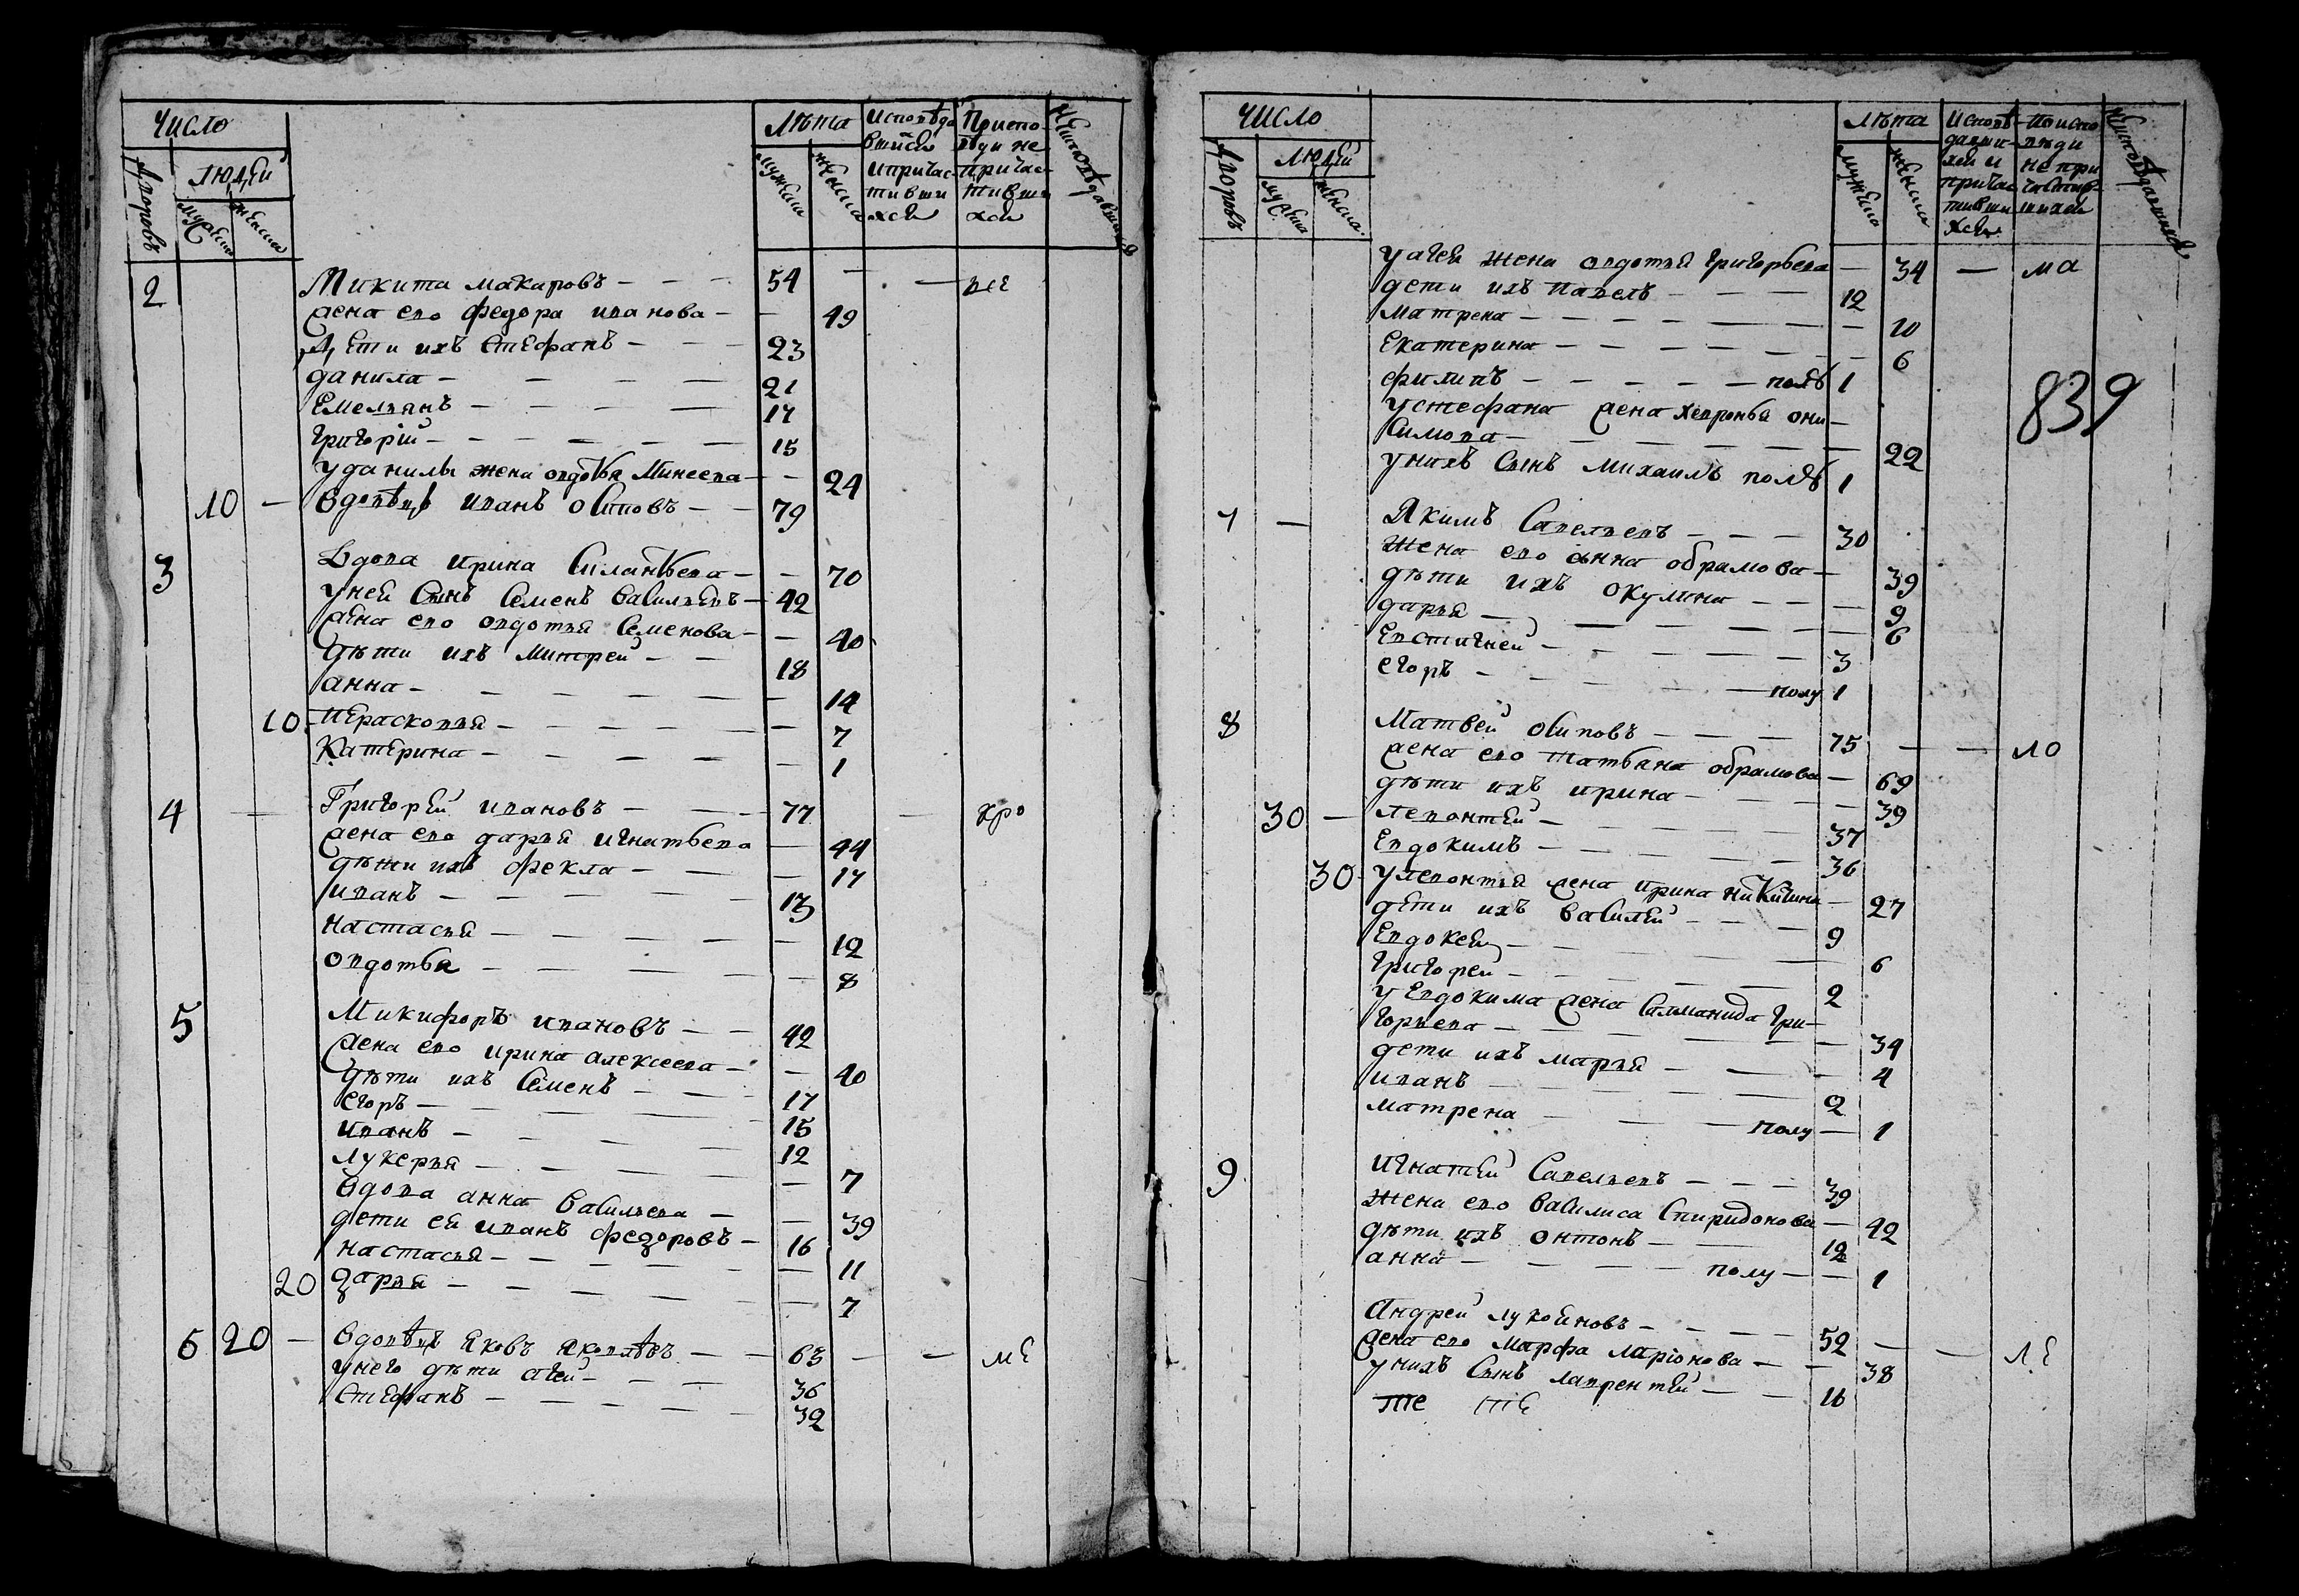 число
лѣта
Исповѣда
вшїися
и причас
тивши
хся
Приспо
вѣди не
причас
тивши
хся
дворовъ
людей
мужска
женска
мужска
женска
2 Микита макаровъ — — — 54 —
Жена ево федора иванова — — 49
Дети ихъ Стефанъ — — — 23
данила — — — — 21
Емельянъ — — — — 17
григорїй — — — — — 15
у данилы жена овдотья Минеева — — 24
10 — вдовѣцъ иванъ осиповъ — — 79
3 Вдова ирина Силантьева — — 70
у ней Сынъ Семенъ васильевъ — 42
Жена ево овдотья Семенова — — 40
дѣти ихъ митрей — — 18
анна — — — — — — 14
10 Перасковья — — — — — 7
Катерина — — — — — 1
4 — Григорей ивановъ — — — 77 — хро
Жена ево дарья игнатьева — 44
дѣти ихъ фекла — — — 17
иванъ — — — — — 13
настасья — — — — — — 12
овдотья — — — — — — 8
5 Микифоръ ивановъ — — 42
Жена ево ирина алексеева — — 40
дѣти ихъ Семенъ — — — 17
егоръ — — — — — 15
иванъ — — — — 12
лукерья — — — — — 7
вдова анна васильева — — 39
дети ея иванъ федоровъ — 16
настасья — — — — — 11
20 дарья — — — — — — 7
6 20 — вдовѣцъ яковъ яковлѣвъ — — 63 — — ме
у него дѣти агей — — — 36
Стефанъ — — — — — 32
число
лѣта
Исповѣ
давши
хся и
причас
тивши
хся
по испо
вѣди
не при
частив
шихся
дворовъ
людей
мужска
женска
мужска
женска
у агея жена овдотья григорьева — 34 — ма
дети ихъ павелъ — — — 12
матрена — — — — — — — 10
Екатерина — — — — — — 6
филипъ — — — — — полъ 1
839
у стефана жена хевронья они—
симова — — — — — — 22
у нихъ Сынъ михаилъ полъ 1
7 — Якимъ Савельевъ — — — 30
жена ево анна обрамова — 39
дѣти ихъ окулина — — — 9
дарья — — — — — — 6
Евстигней — — — — — 3
егоръ — — — — — полу 1
8 Матвей осиповъ — — — 75 — — ло
Жена ево татьяна обрамова — 69
дѣти ихъ ирина — — — — 39
30 — левонтей — — — — — 37
Евдокимъ — — — — — 36
30 у левонтья жена ирина никитина — 27
дети ихъ василей — — — 9
Евдокея — — — — — 6
григорей — — — — — 2
у Евдокима жена Саламанида гри—
горьева — — — — — — 34
дети ихъ марья — — — 4
иванъ — — — — — 2
матрена — — — полу — 1
9 игнатей Савельевъ — — — 39
жена ево василиса Спиридонова — 42
дѣти ихъ онтонъ — — 12
анна — — — — полу — — 1
Андрей лукоиновъ — — — — 52 — — ле
Жена ево марфа ларїонова — — 38
у нихъ Сынъ лаврентей — — 16